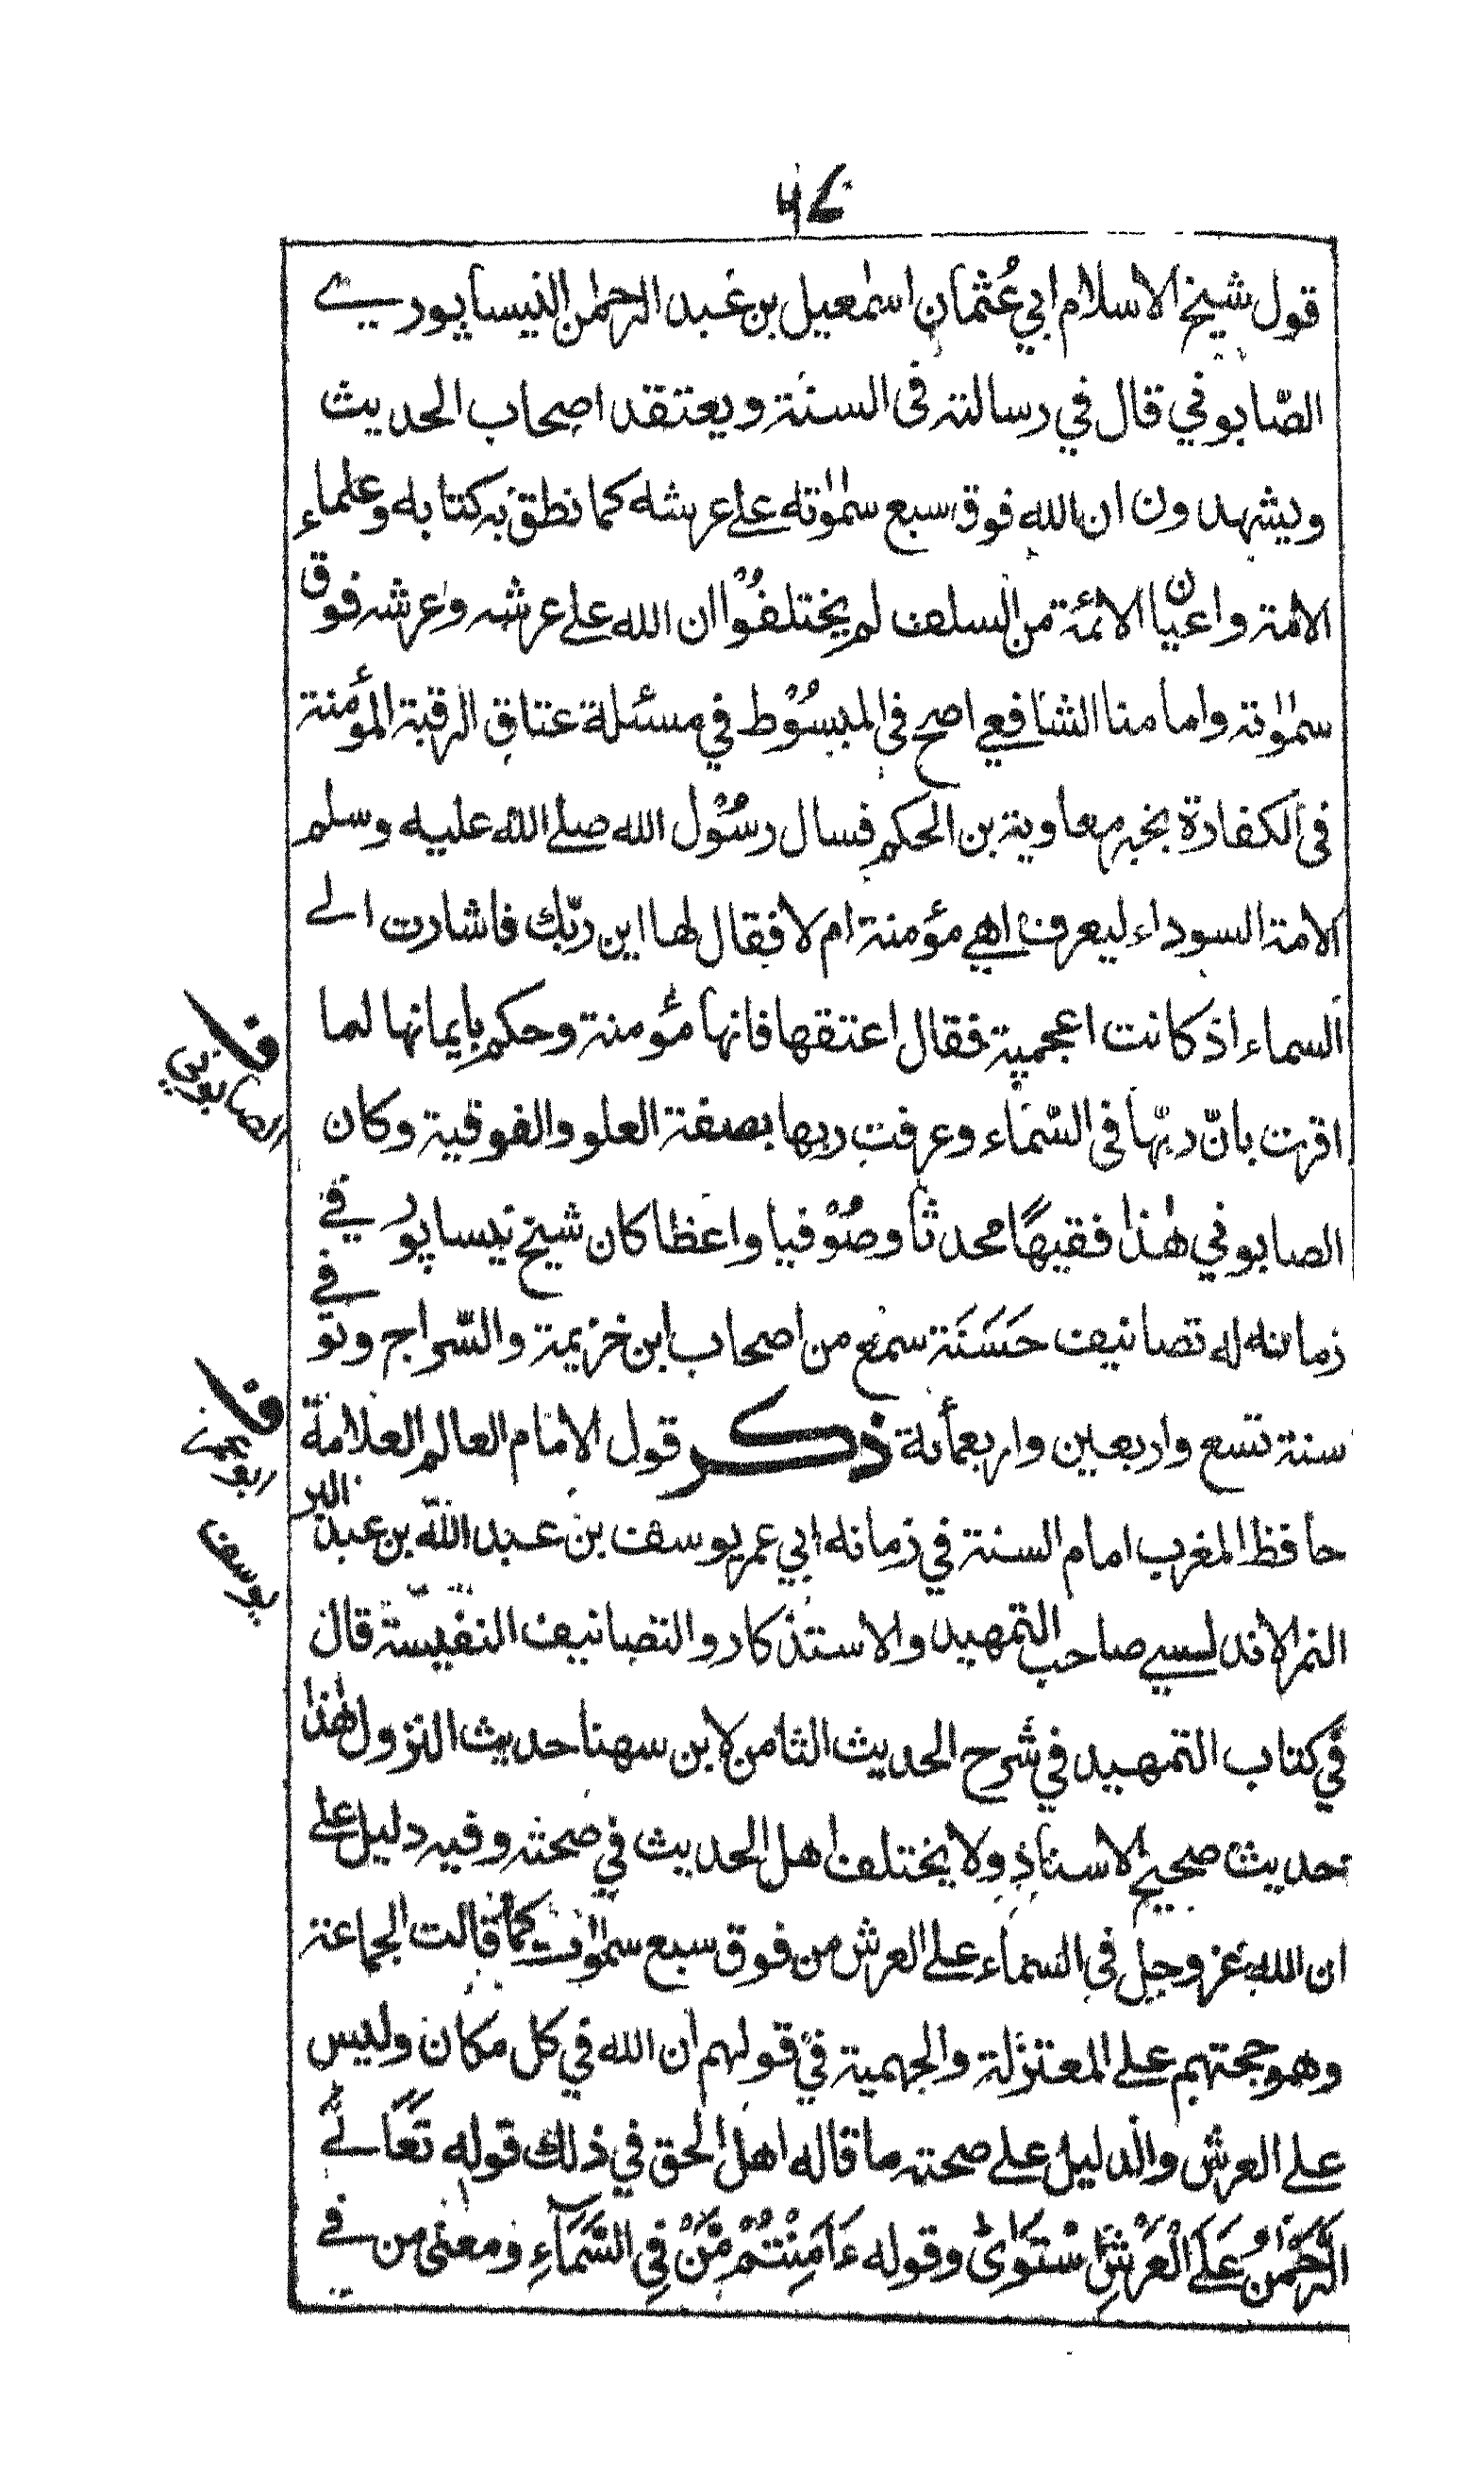 قول شيخ الاسلام ابي عُثمان اسمٰعيل بن عَبد الرحمٰن النيسابوري
الصّابوني قال في رسالته فى السنة ويعتقد اصحاب الحديث
ويشهدون ان الله فوق سبع سمٰوٰته على عرشه كما نطق به كتابه وعلماء
الامة واعيان الائمة من السلف لم يختلفُوْا ان الله على عرشه وعرشه فوق
سمٰوٰته وامامنا الشافعي اصح فى المبسُوْط في مسئلة عتاق الرقبة المؤمنة
فى الكفارة بخبر معاوية بن الحكم فسال رسُوْل الله صلى الله عليه وسلم
الامة السوداء ليعرف اهي مؤمنة ام لا فقال لها اين ربّك فاشارت الى
السماء اذ كانت اعجمية فقال اعتقها فانها مؤمنة وحكم بايمانها لما
اقرت بانّ ربّها فى السّماء وعرفت ربها بصفة العلو والفوقية وكان
الصابوني هٰذا فقيهًا محدثا وصُوْفيا واعظا كان شيخ نيسابور في
زمانه له تصانيف حَسَنَة سمع من اصحاب ابن خزيمة والسّراج وتوفي
سنة تسع واربعين واربعمأئة ذكر قول الامام العالم العلامة
حافظ المغرب امام السنة في زمانه ابي عمر يوسف بن عبد الله بن عبد البر
النمر الاندلسي صاحب التمهيد والاستذكار والتصانيف النفيسة قال
في كتاب التمهيد في شرح الحديث الثامن لابن سهنا حديث النزول هٰذا
حديث صحيح الاسناد ولا يختلف اهل الحديث في صحته وفيه دليل على
ان الله عز وجل فى السماء على العرش من فوق سبع سمٰوٰت كما قالت الجماعة
وهو حجتهم على المعتزلة والجهمية في قولهم ان الله في كل مكان وليس
على العرش والدليل على صحته ما قاله اهل الحق في ذلك قوله تَعَالٰى
الرَّحْمٰنُ عَلَى الْعَرْشِ اسْتَوٰى وقوله ءَاَمِنْتُمْ مَّنْ فِي السَّمَآءِ ومعنى من في
الصابوني
يوسف